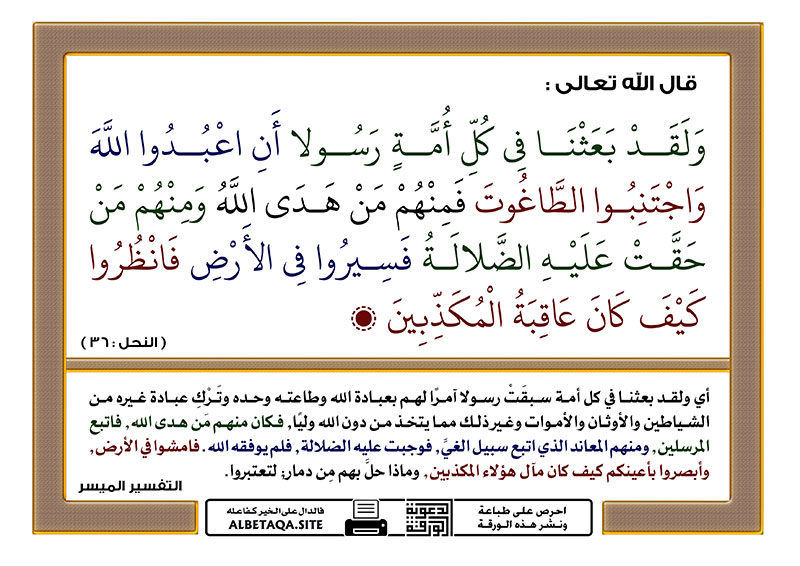 قال الله تعالى :
وَلَقَدْ بَعَثْنَا فِي كُلِّ أُمَّةٍ رَسُولا أَنِ اعْبُدُوا اللَّهَ
وَاجْتَنِبُوا الطَّاغُوتَ فَمِنْهُمْ مَنْ هَدَى اللَّهُ وَمِنْهُمْ مَنْ
حَقَّتْ عَلَيْهِ الضَّلالَةُ فَسِيرُوا فِي الأَرْضِ فَانْظُرُوا
كَيْفَ كَانَ عَاقِبَةُ الْمُكَذِّبِينَ
( النحل : ٣٦ )
أي ولقد بعثنا في كل أمة سبقَتْ رسولا آمرًا لهم بعبادة الله وطاعته وحده وتَرْكِ عبادة غيره من
الشياطين والأوثان والأموات وغير ذلك مما يتخذ من دون الله وليًا, فكان منهم مَن هدى الله, فاتبع
المرسلين, ومنهم المعاند الذي اتبع سبيل الغيِّ, فوجبت عليه الضلالة, فلم يوفقه الله. فامشوا في الأرض,
وأبصروا بأعينكم كيف كان مآل هؤلاء المكذبين, وماذا حلَّ بهم مِن دمار; لتعتبروا.
التفسير الميسر
احرص على طباعة
ونشر هذه الورقة
الورقة
الدعوية
فالدال على الخير كفاعله
ALBETAQA.SITE